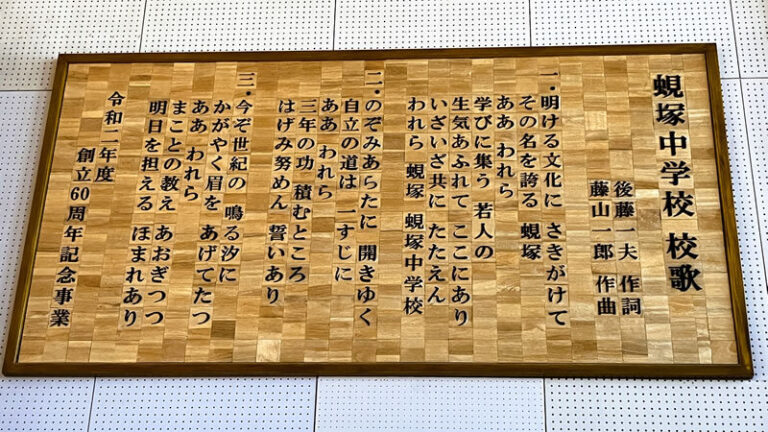 蜆塚中学校 校歌
後藤一夫 作詞
藤山一郎 作曲
一.明ける文化に さきがけて
その名を誇る 蜆塚
ああ われら
学びに集う 若人の
生気あふれて ここにあり
いざいざ共に たたえん
われら 蜆塚 蜆塚中学校
二.のぞみあらたに 開きゆく
自立の道は 一すじに
ああ われら
三年の功 積むところ
はげみ努めん 誓いあり
三.今ぞ世紀の 鳴る汐に
かがやく眉を あげてたつ
ああ われら
まことの教え あおぎつつ
明日を担える ほまれあり
令和二年度
創立60周年記念事業